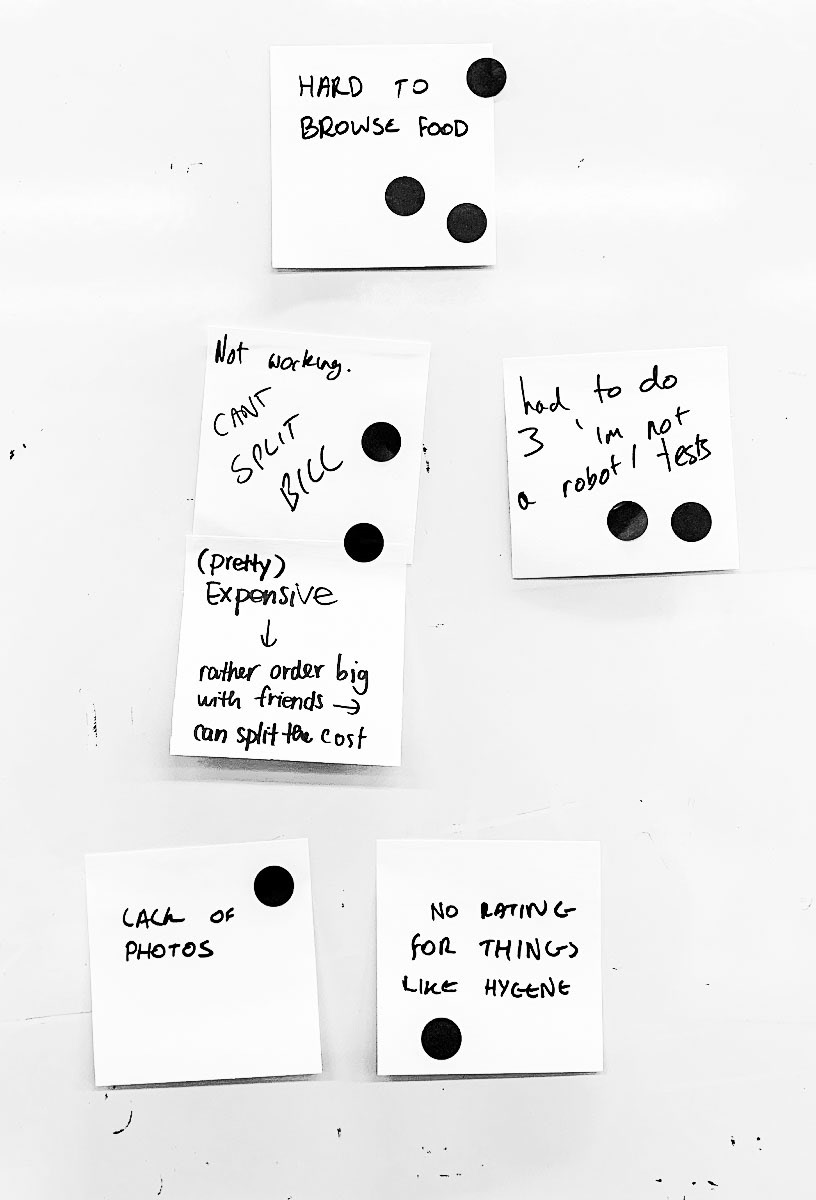 HARD TO
BROWSE FOOD
Not working.
CANT
SPLIT
BILL
had to do
3 'Im not
a robot' tests
(pretty)
Expensive
↓
rather order big
with friends →
can split the cost
LACK OF
PHOTOS
NO RATING
FOR THINGS
LIKE HYGENE